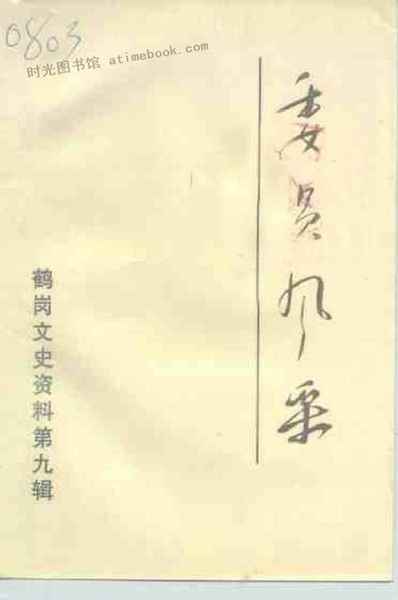 0803
时光图书馆 atimebook.com
委员风采
鹤岗文史资料第九辑